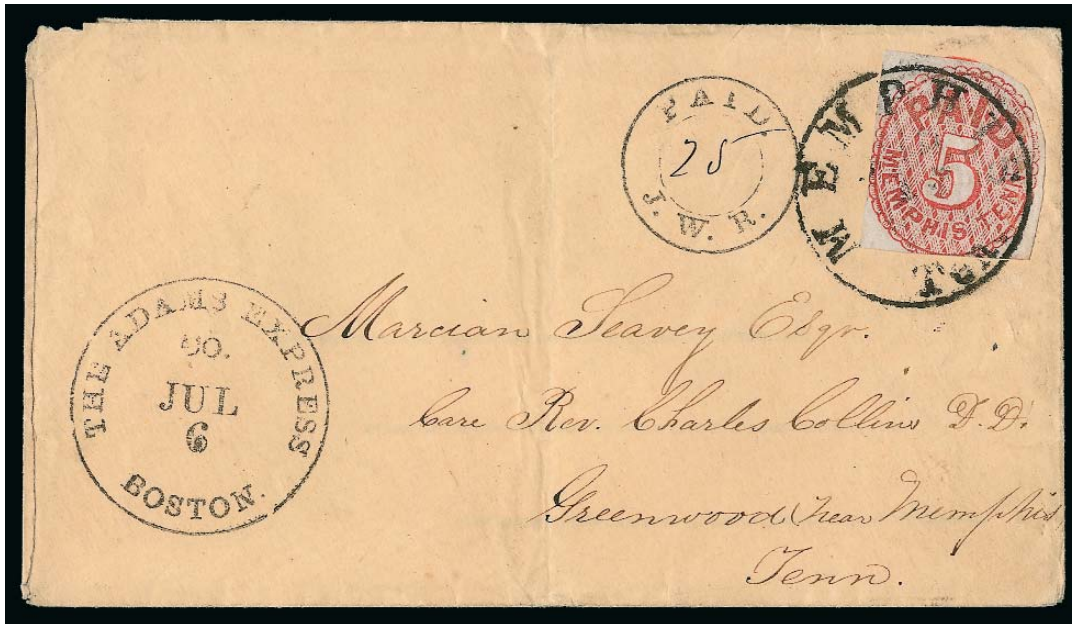 PAID.
25
J. W. R.
MEMPHIS
Ten.
PAID
5
MEMPHIS TENN
THE ADAMS EXPRESS
CO.
JUL
6
BOSTON.
Marcian Seavey Esqr.
Care Rev. Charles Collins D.D.
Greenwood, near Memphis
Tenn.